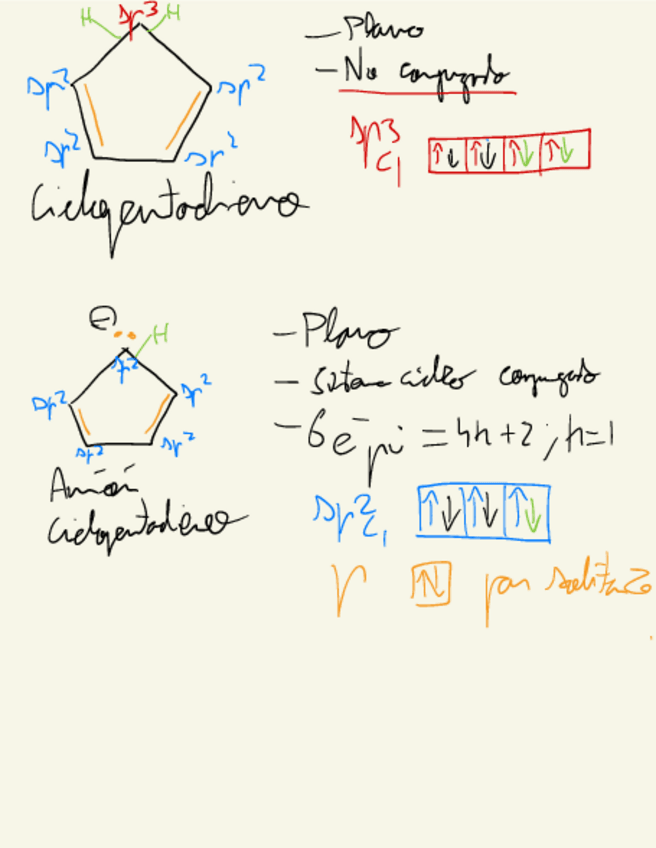 H sp3 H
sp2 sp2
sp2 sp2
Ciclopentadieno
– Plano
– No conjugado
sp3
C1
⊖ H
sp2
sp2 sp2
sp2 sp2
Anión
ciclopentadieno
– Plano
– sistema cíclico conjugado
– 6e⁻pi = 4n+2 ; n=1
sp2
C1
p par solitario